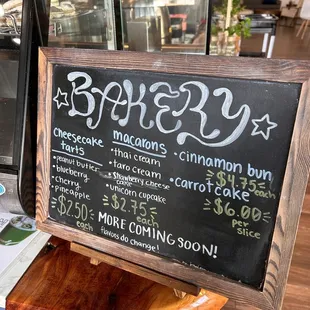 BAKERY
Cheesecake
tarts
• peanut butter
• blueberry
• cherry
• pineapple
$2.50
each
macarons
• thai cream
• taro cream
• strawberry cheese
cake
• unicorn cupcake
$2.75
each
• cinnamon bun
$4.75
each
• carrot cake
$6.00
per
slice
MORE COMING SOON!
flavors do change!